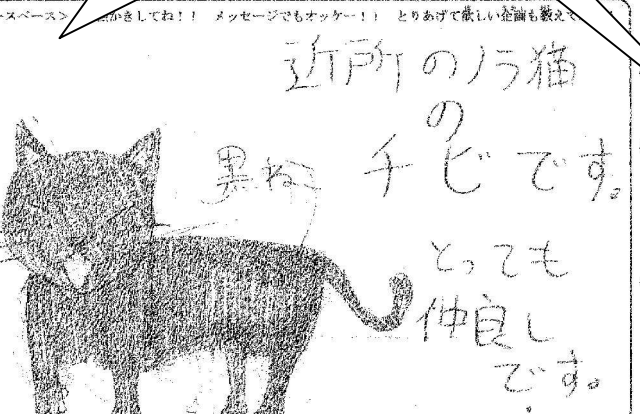 スペース> かきしてね！！ メッセージでもオッケー！！ とりあげて欲しい企画も教えて
近所のノラ猫
の
チビです。
黒ねこ
とっても
仲良し
です。